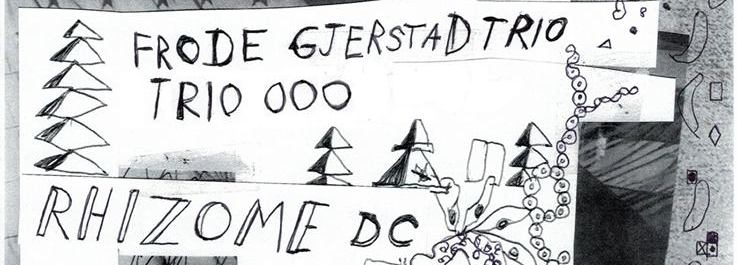 FRODE GJERSTAD TRIO
TRIO OOO
RHIZOME DC